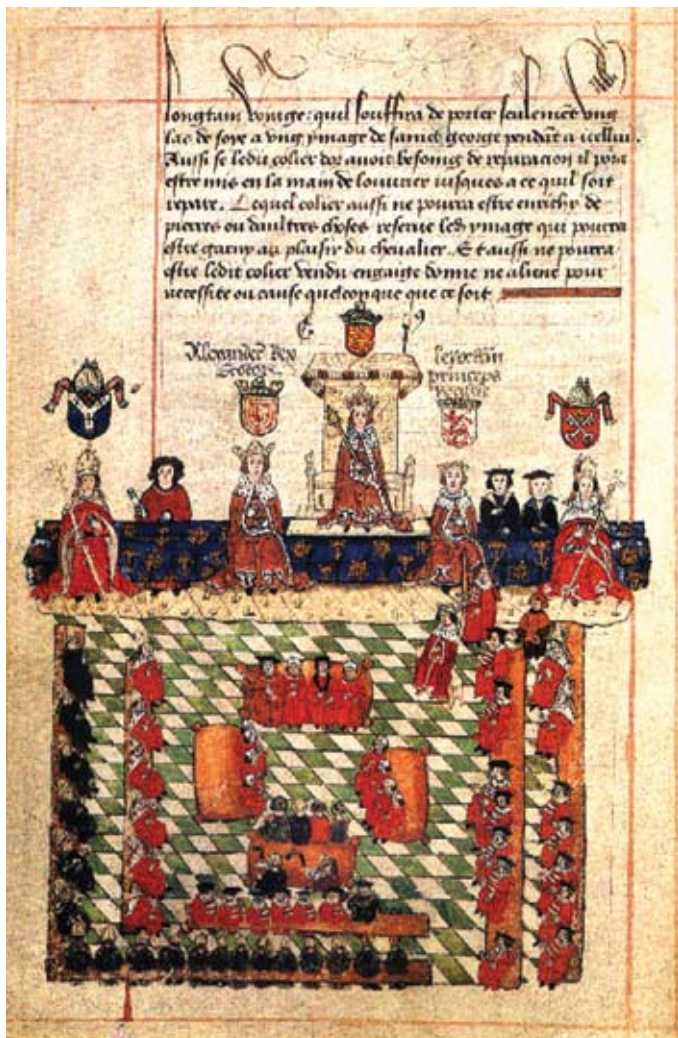 longtain voiage: quil souffira de porter seulemẽt vng
las de soye a vng ymage de sainct george pendãt a icelluy.
Aussi se ledit colier dor avoit besoing de reparacion il pora
estre mis en la main de louurier iusques a ce quil soit
repare. Lequel colier aussi ne pourra estre enrichy de
pierres ou daultres choses reserue led ymage qui pourra
estre garny au plaisir du cheualier. Et aussi ne pourra
estre ledit colier vendu engaige donne ne aliene pour
necessite ou cause quelconque que ce soit
Alexander Rex
Scotor
princeps